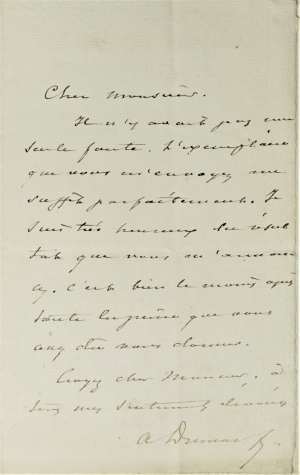 Cher Monsieur.
Il n'y avait pas une
seule faute. L'exemplaire
que vous m'envoyez me
suffit parfaitement. Je
suis très heureux du résul
tat que vous m'annon
cez. C'est bien le moins après
toute la peine que vous
avez dû vous donner.
Croyez cher Monsieur, à
tous mes sentiments dévoués
A Dumas f.